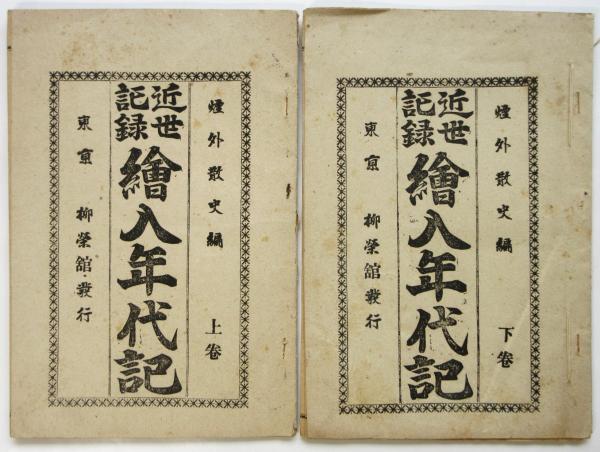 煙外散史編 上卷
近世
記録
繪入年代記
東亰 柳榮舘發行
煙外散史編 下卷
近世
記録
繪入年代記
東亰 柳榮舘發行